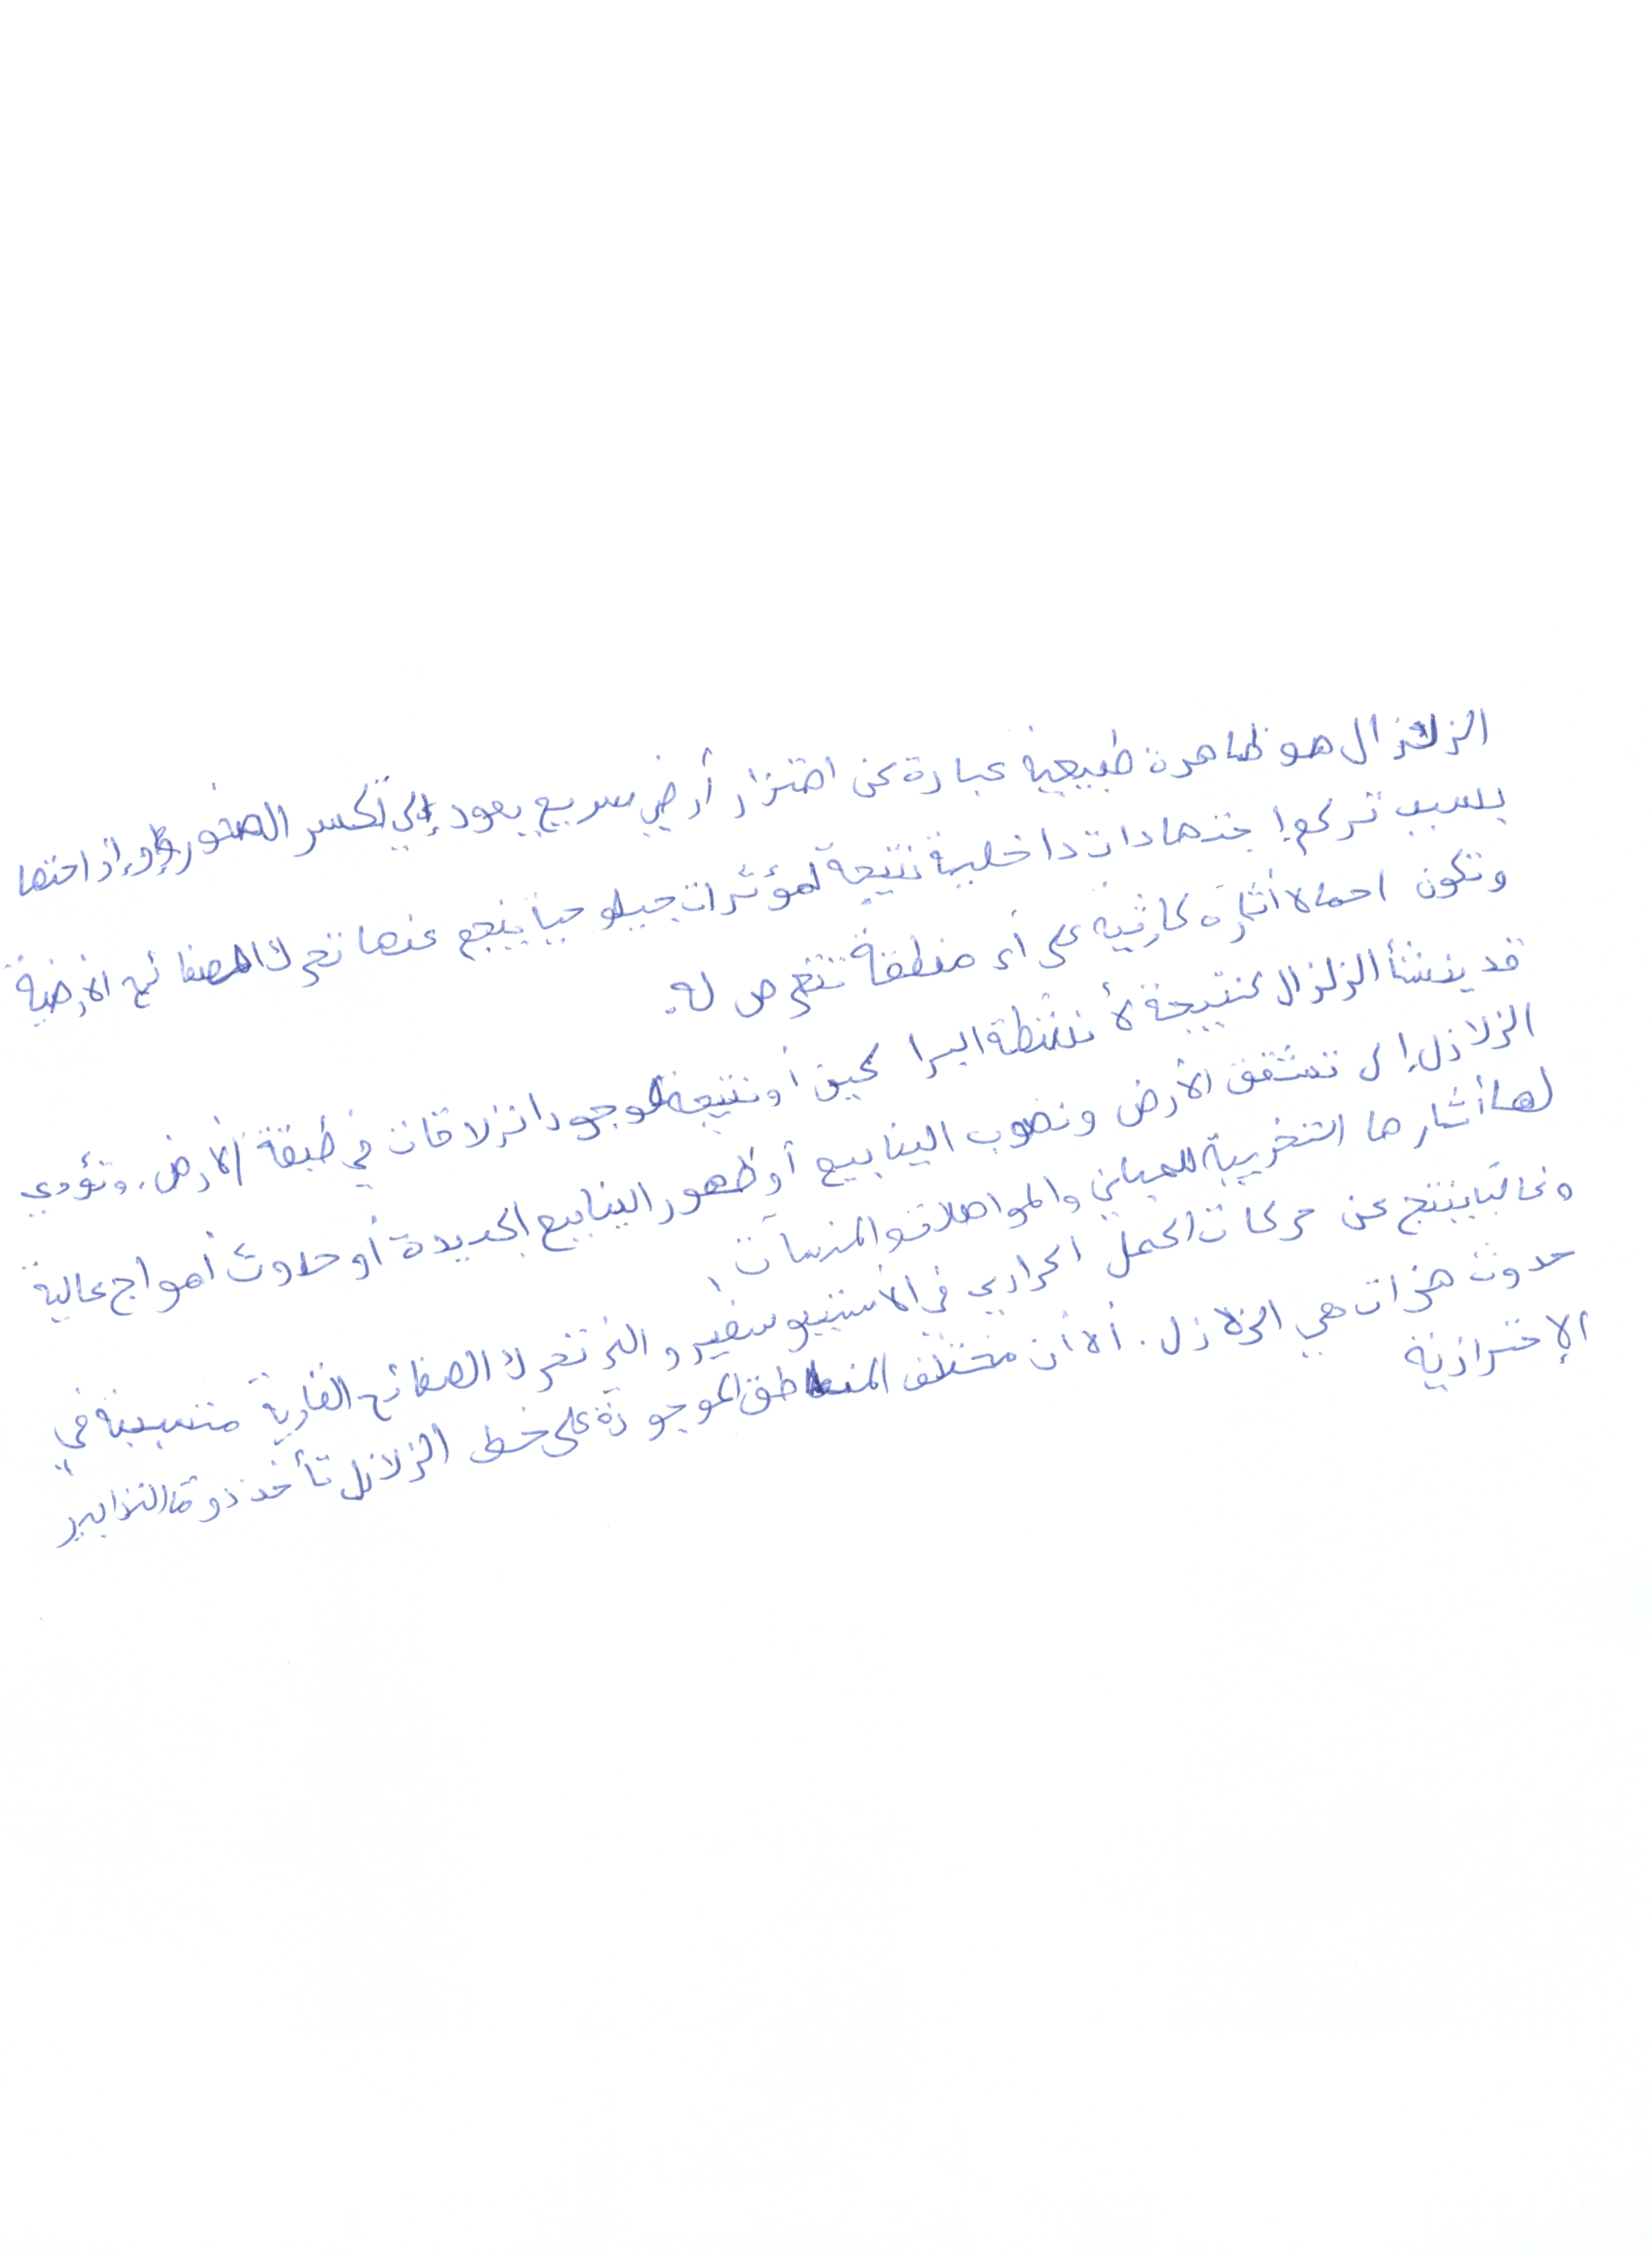 الزلزال هو ظاهرة طبيعية عبارة عن اهتزاز أرضي سريع يعود إلى تكسر الصخور وإزاحتها
بسبب تركم إجتهادات داخلية نتيجة لمؤثرات جيلوجيا ينجم عنها تحرك الصفائح الأرضية
وتكون احمالا أثاره كارثية على أي منطقة تتعرض له.
قد ينشأ الزلزال كنتيجة لأنشطة البراكين أو نتيجة لوجود انزلاقات في طبقة الأرض. وتؤدي
الزلازل إلى تشقق الأرض ونضوب الينابيع أو ظهور الينابيع الجديدة أو حدوث أمواج عالية
لها أثارها التخريبية للمباني والمواصلات والمنسات.
وغالبًا ينتج عن حركات الحمل الحراري في الأستينوسفير والتي تحرك الصفائح القارية متسببة في
حدوث هزات هي الزلازل. ألا أن مختلف المناطق الموجودة على خط الزلازل تأخذ دوما التدابير
الإحترازية